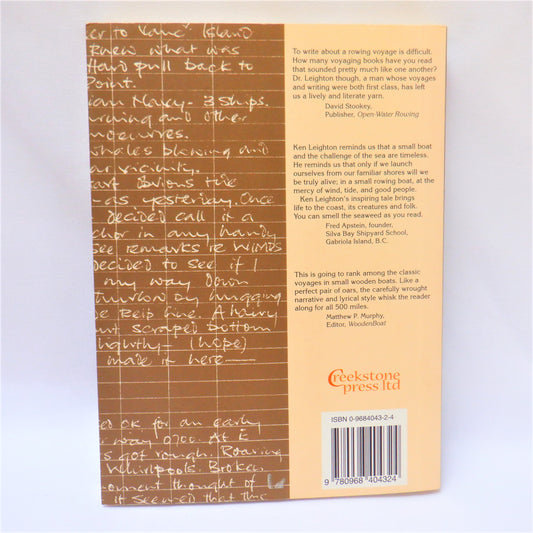 er to "Lane" Island
Knew what was
Hard pull back to
Point.
ian Navy - 3 Ships.
rching and other
noeuvres.
whales blowing and
ar vicinity.
art obvious tide
-as yesterday. Once
decided call it a
chor in any handy
see remarks re WINDS
Decided to see if I
my way down
hugging
e Reid Fine. A hairy
ut scraped bottom
lightly - (hope)
made it here -
ed OK for an early
way 0700. At E
s got rough. Roaring
Whirlpools. Broken
oment thought of
it seemed that this
To write about a rowing voyage is difficult.
How many voyaging books have you read
that sounded pretty much like one another?
Dr. Leighton though, a man whose voyages
and writing were both first class, has left
us a lively and literate yarn.
David Stookey,
Publisher, Open Water Rowing
Ken Leighton reminds us that a small boat
and the challenge of the sea are timeless.
He reminds us that only if we launch
ourselves from our familiar shores will we
be truly alive; in a small rowing boat, at the
mercy of wind, tide, and good people.
Ken Leighton's inspiring tale brings
life to the coast, its creatures and folk.
You can smell the seaweed as you read.
Fred Apstein, founder,
Silva Bay Shipyard School,
Gabriola Island, B.C.
This is going to rank among the classic
voyages in small wooden boats. Like a
perfect pair of oars, the carefully wrought
narrative and lyrical style whisk the reader
along for all 500 miles.
Matthew P. Murphy,
Editor, WoodenBoat
Creekstone
press ltd
ISBN 0-9684043-2-4
9 780968 404324